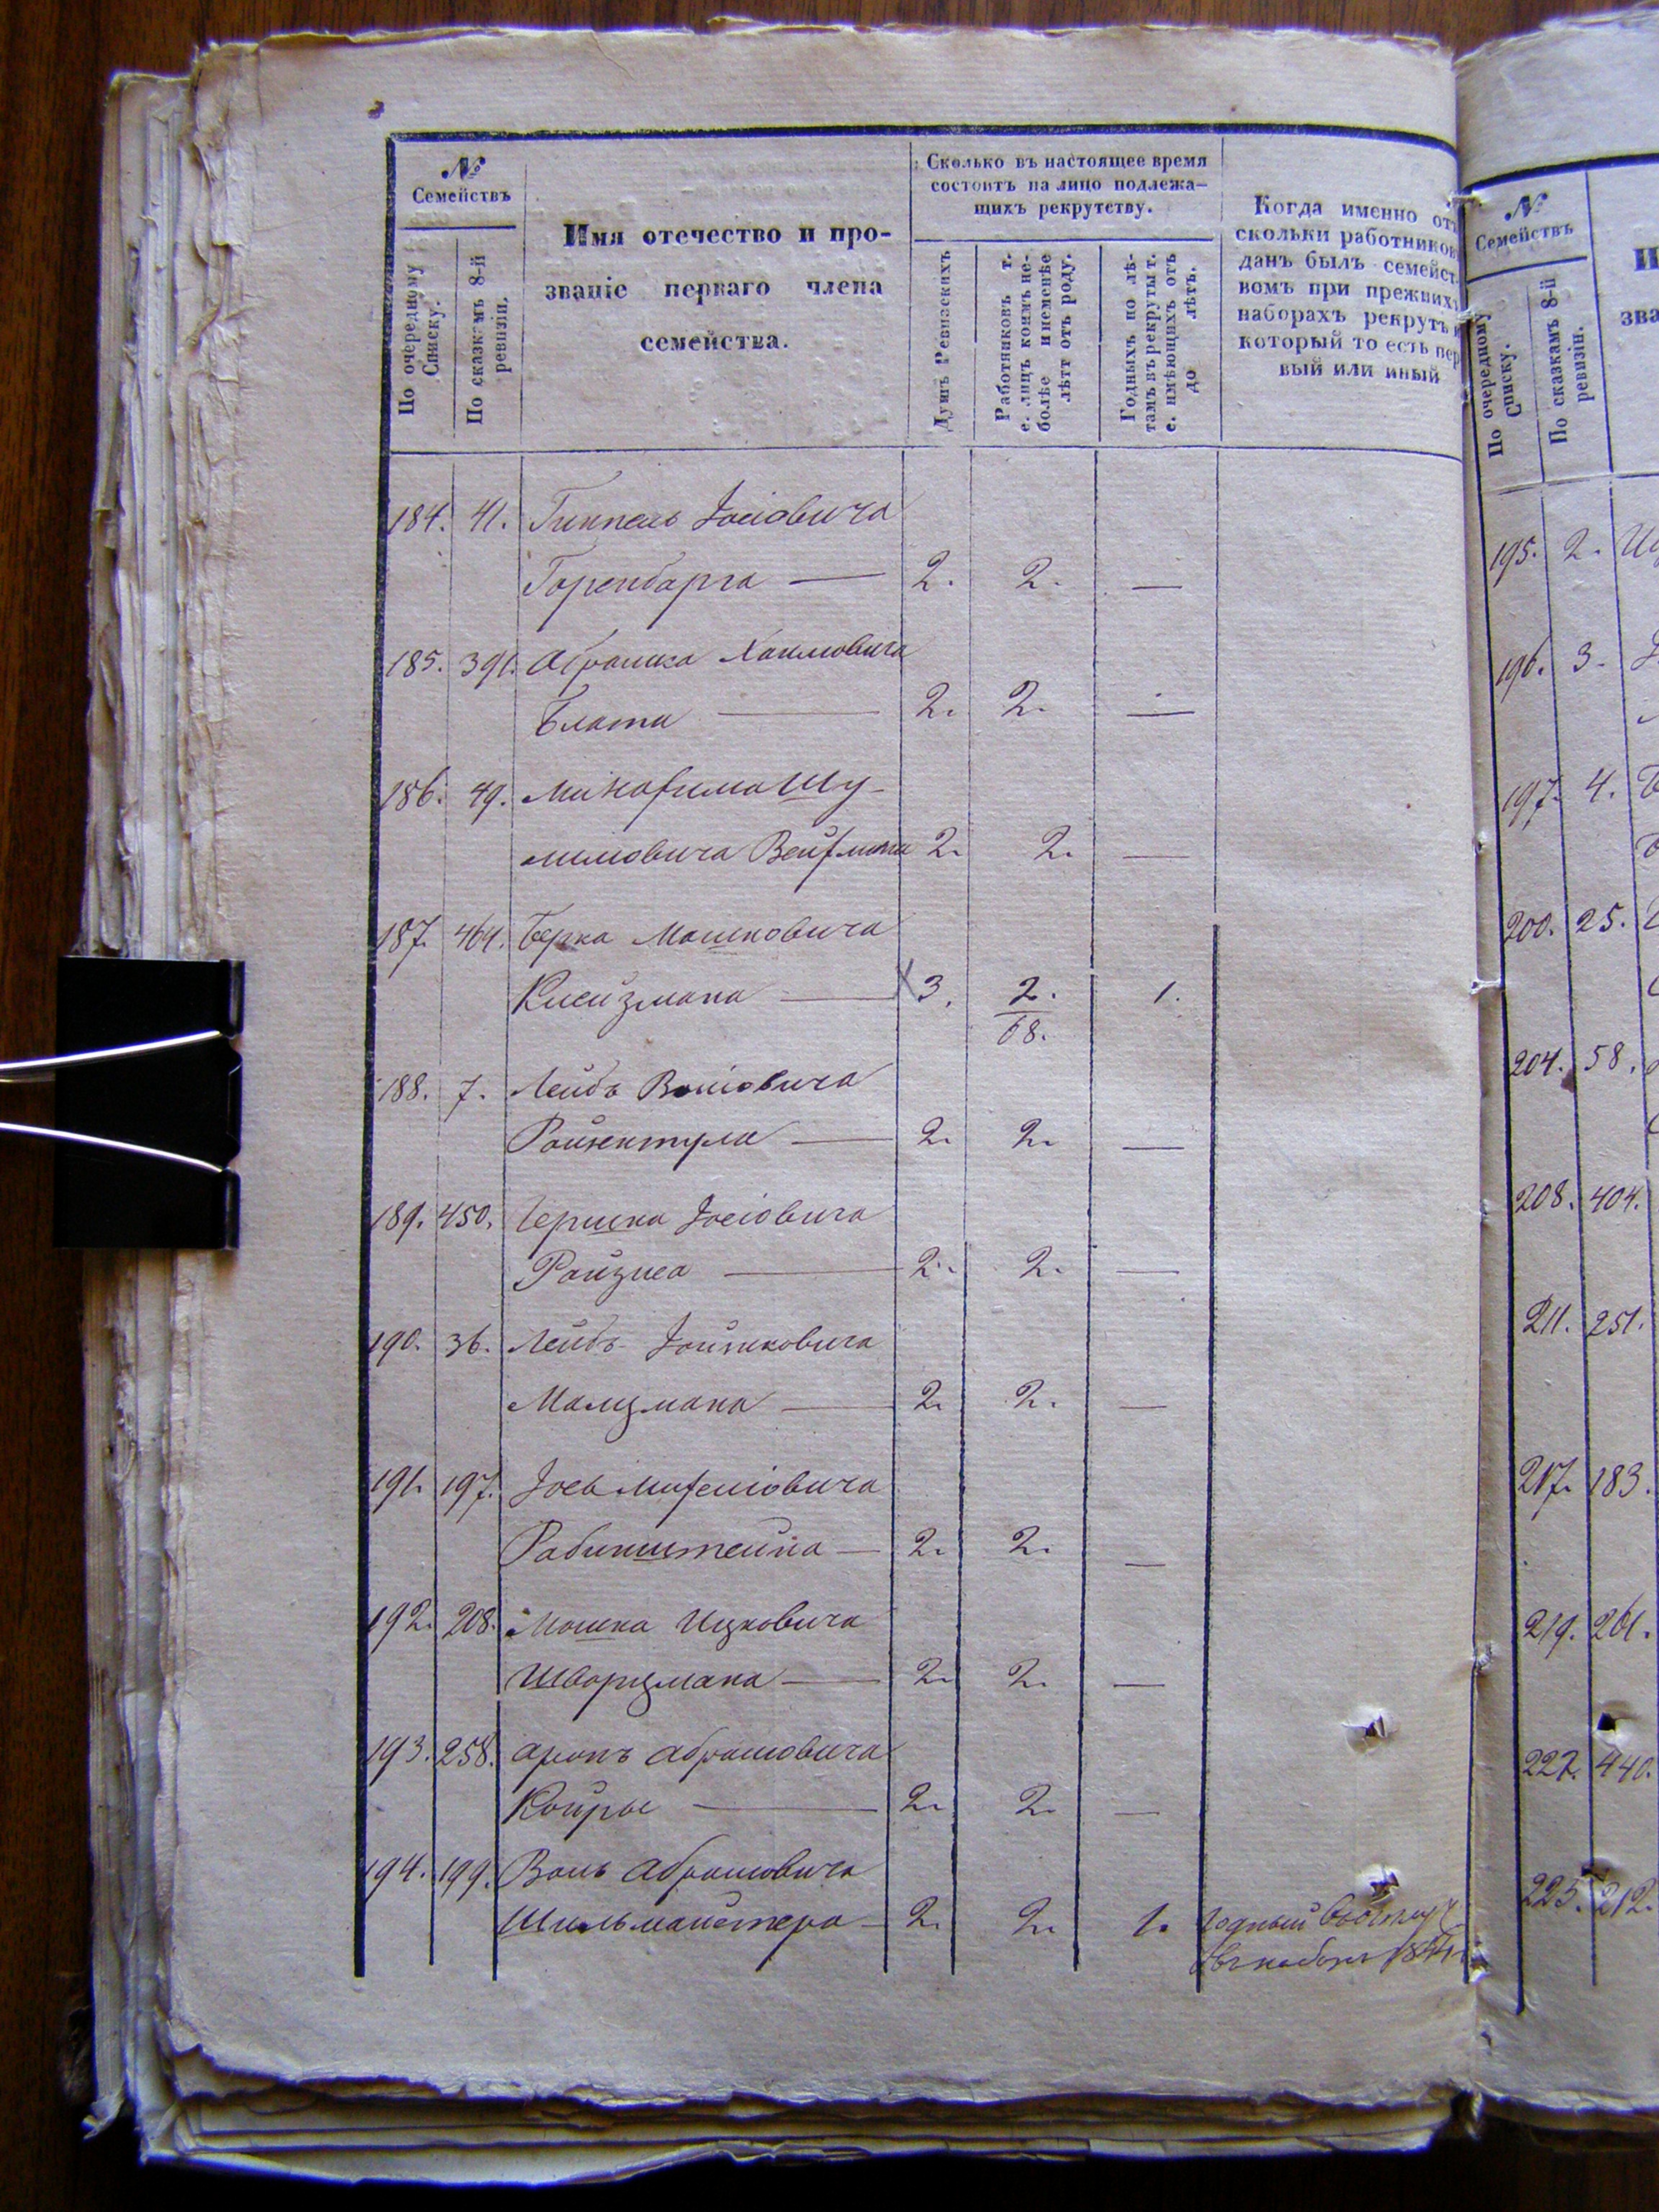 №
Семействъ
По очередному
Списку.
По сказкамъ 8-й
ревизіи.
Имя отечество и про-
званіе перваго члена
семейства.
Сколько въ настоящее время
состоитъ на лицо подлежа-
щихъ рекрутству.
Душъ Ревизскихъ
Работниковъ т.
е. лицъ коимъ не-
болѣе и неменѣе
лѣтт отъ роду.
Годныхъ по лѣ-
тамъ въ рекруты т.
е. имѣющихъ отъ
до лѣтъ.
Когда именно от
скольки работников
данъ былъ семейст
вомъ при прежнихъ
наборахъ рекрутъ и
который то есть пер
вый или иный
184. 41. Гимпель Іосіовича
Горенбарга — 2. 2. —
185. 391. Абрамка Хаимовича
Блата — 2. 2. —
186. 49. Шу-
лимовича Вейцмана 2. 2. —
187. 464. Берка Мошковича
Клейзмана — 3. 2. 1.
68.
188. 7. Лейбъ
2. 2. —
189. 450. Гершка Іосіовича
Ройзиса — 2. 2. —
190. 36. Лейбъ
Малцмана — 2. 2. —
191. 197. Іось
Рабинштейна — 2. 2. —
192. 208. Мошка Ицковича
Шварцмана — 2. 2. —
193. 258. Аронъ Абрамовича
Койры — 2. 2. —
194. 199. Абрамовича
Шильмайстера — 2. 2. 1. Годный
1844
№
Семействъ
По очередному
Списку.
По сказкамъ 8-й
ревизіи.
И
зва
195. 2.
196. 3.
197. 4.
200. 25.
204. 58.
208. 404.
211. 251.
217. 183.
219. 261.
222. 440.
225. 212.